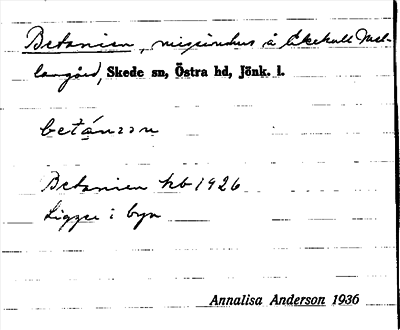 Betanien, missionshus å Ekekull Mel-
langård, Skede sn, Östra hd, Jönk. l.
betánɪən
Betanien hb 1926
Ligger i byn
Annalisa Anderson 1936